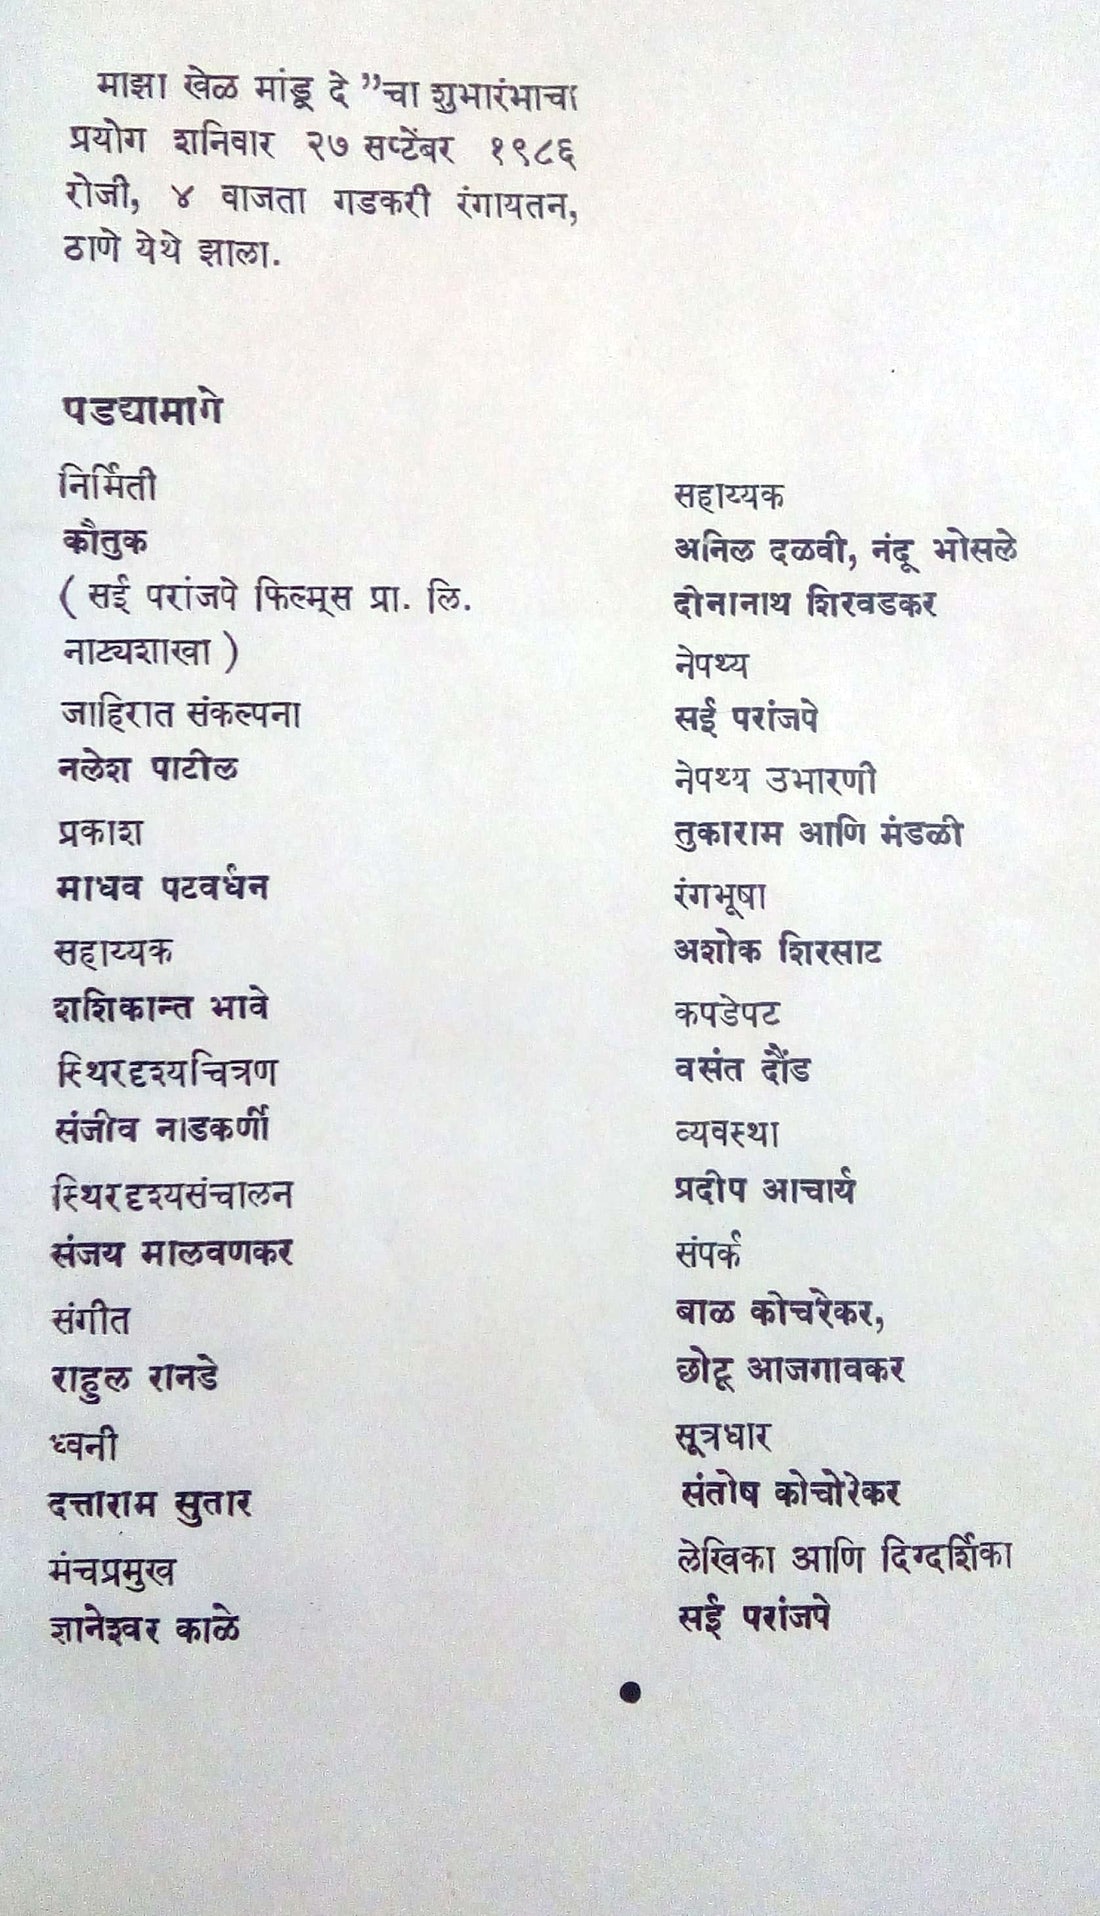 माझा खेळ मांडू दे ”चा शुभारंभाचा
प्रयोग शनिवार २७ सप्टेंबर १९८६
रोजी, ४ वाजता गडकरी रंगायतन,
ठाणे येथे झाला.
पडद्यामागे
निर्मिती
कौतुक
( सई परांजपे फिल्म्स प्रा. लि.
नाट्यशाखा )
जाहिरात संकल्पना
नलेश पाटील
प्रकाश
माधव पटवर्धन
सहाय्यक
शशिकान्त भावे
स्थिरदृश्यचित्रण
संजीव नाडकर्णी
स्थिरदृश्यसंचालन
संजय मालवणकर
संगीत
राहुल रानडे
ध्वनी
दत्ताराम सुतार
मंचप्रमुख
ज्ञानेश्वर काळे
सहाय्यक
अनिल दळवी, नंदू भोसले
दीनानाथ शिरवडकर
नेपथ्य
सई परांजपे
नेपथ्य उभारणी
तुकाराम आणि मंडळी
रंगभूषा
अशोक शिरसाट
कपडेपट
वसंत दौंड
व्यवस्था
प्रदीप आचार्य
संपर्क
बाळ कोचरेकर,
छोटू आजगावकर
सूत्रधार
संतोष कोचोरेकर
लेखिका आणि दिग्दर्शिका
सई परांजपे